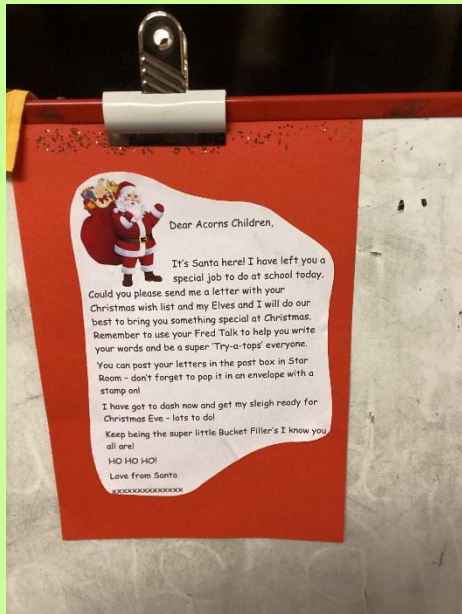 Dear Acorns Children,
It's Santa here! I have left you a
special job to do at school today.
Could you please send me a letter with your
Christmas wish list and my Elves and I will do our
best to bring you something special at Christmas.
Remember to use your Fred Talk to help you write
your words and be a super 'Try-a-tops' everyone.
You can post your letters in the post box in Star
Room – don't forget to pop it in an envelope with a
stamp on!
I have got to dash now and get my sleigh ready for
Christmas Eve – lots to do!
Keep being the super little Bucket Filler's I know you
all are!
HO HO HO!
Love from Santa
xxxxxxxxxxxxxx